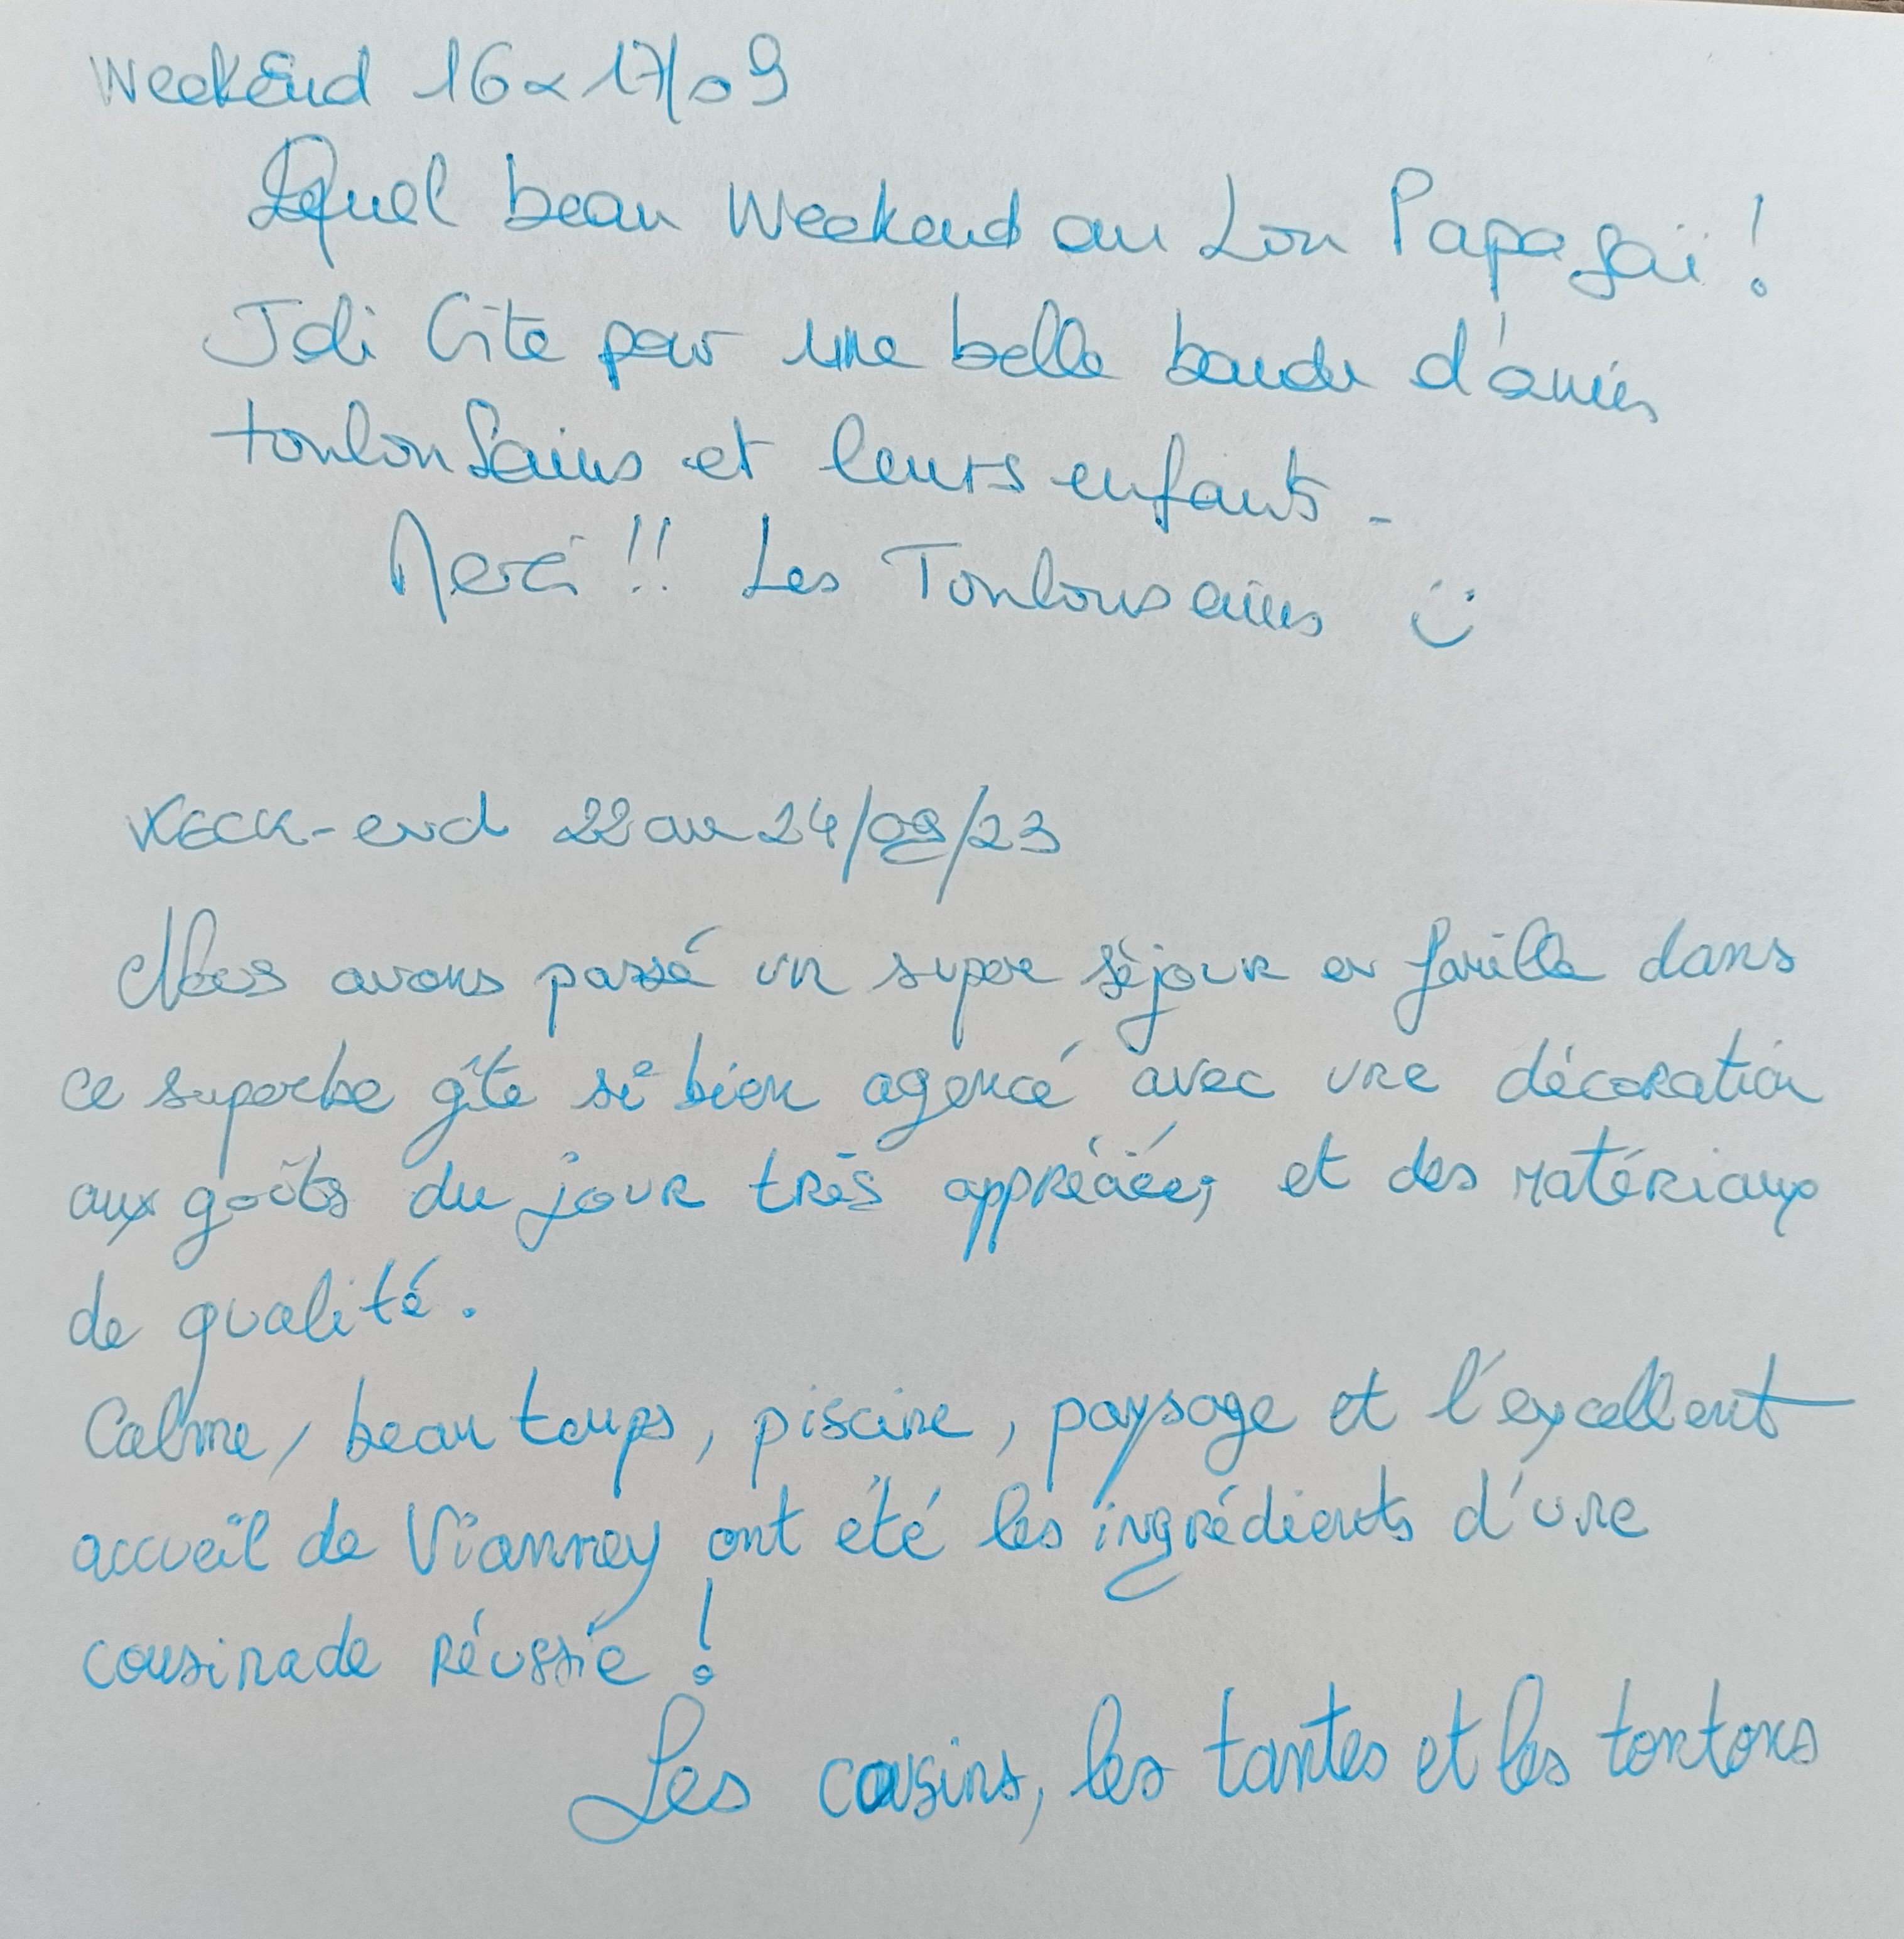 WeekEnd 16 & 17/09
Quel beau Weekend au Lou Papagaï !
Joli Gîte pour une belle bande d'amis
toulousains et leurs enfants -
Merci !! Les Toulousains :)
WEEK-end 22 au 24/09/23
Nous avons passé un super séjour en famille dans
ce superbe gîte si bien agencé avec une décoration
aux goûts du jour très appréciée, et des matériaux
de qualité.
Calme, beau temps, piscine, paysage et l'excellent
accueil de Vianney ont été les ingrédients d'une
cousinade réussie !
Les cousins, les tantes et les tontons